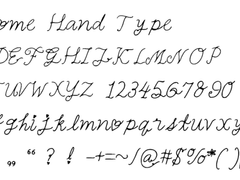 ome Hand Type
DEFGHIJKLMNOP
TUVWXYZ 1234567890
fghijklmnopqrstuvwxy
„ “ ? ! -+=~/@#$%*()